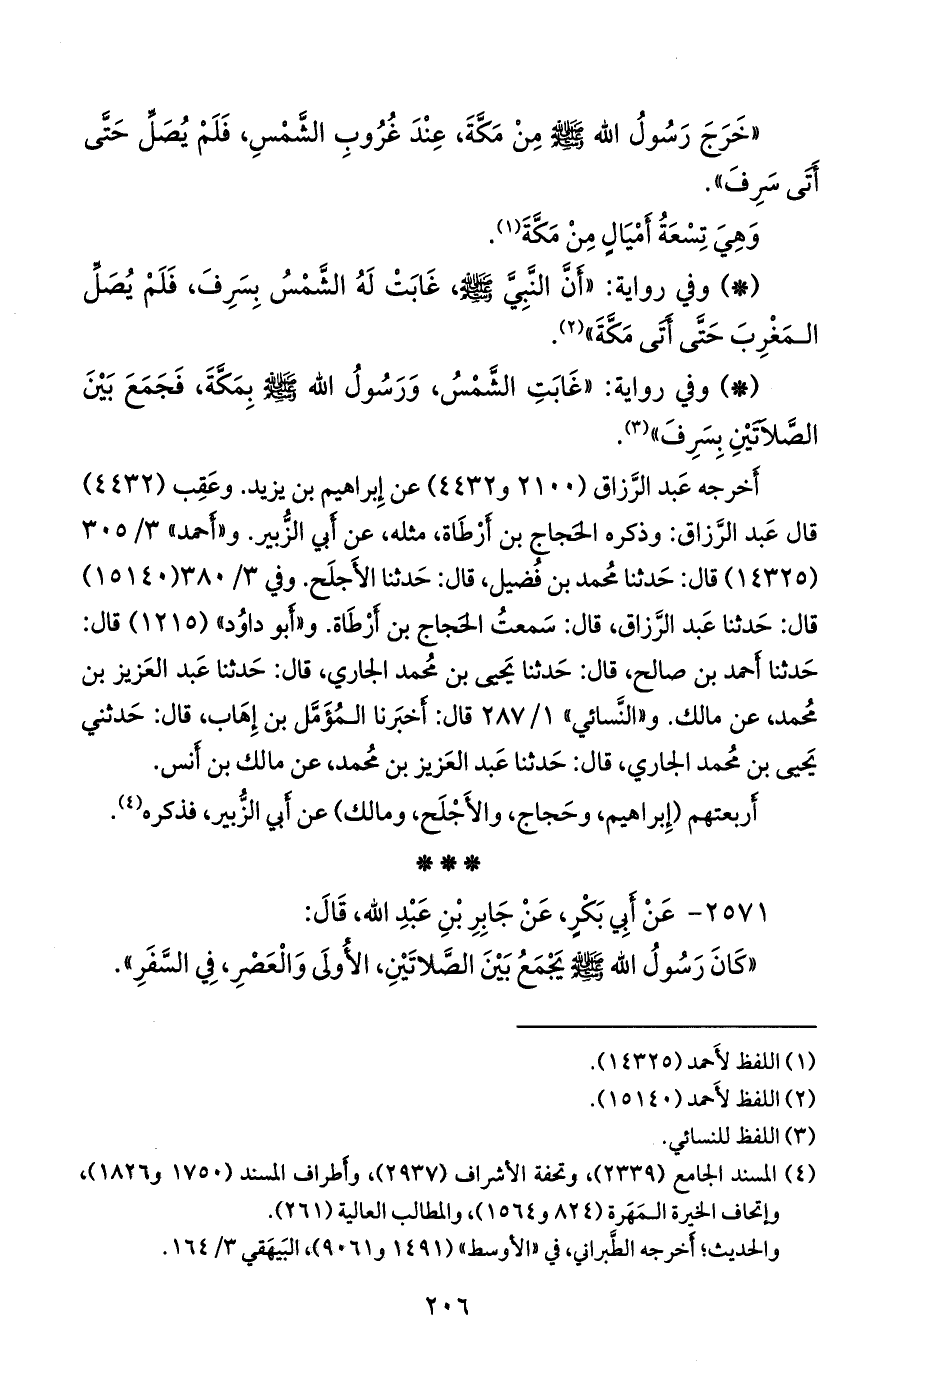 «خَرَجَ رَسُولُ الله ﷺ مِنْ مَكَّةَ، عِنْدَ غُرُوبِ الشَّمْسِ، فَلَمْ يُصَلِّ حَتَّى
أَتَى سَرِفَ».
وَهِيَ تِسْعَةُ أَمْيَالٍ مِنْ مَكَّةَ(١).
(*) وفي رواية: «أَنَّ النَّبِيَّ ﷺ، غَابَتْ لَهُ الشَّمْسُ بِسَرِفَ، فَلَمْ يُصَلِّ
الـمَغْرِبَ حَتَّى أَتَى مَكَّةَ»(٢).
(*) وفي رواية: «غَابَتِ الشَّمْسُ، وَرَسُولُ الله ﷺ بِمَكَّةَ، فَجَمَعَ بَيْنَ
الصَّلاَتَيْنِ بِسَرِفَ»(٣).
أَخرجه عَبد الرَّزاق (٢١٠٠ و٤٤٣٢) عن إِبراهيم بن يزيد. وعَقِب (٤٤٣٢)
قال عَبد الرَّزاق: وذكره الحَجاج بن أَرْطَاة، مثله، عن أَبي الزُّبير. و«أَحمد» ٣/ ٣٠٥
(١٤٣٢٥) قال: حَدثنا مُحمد بن فُضيل، قال: حَدثنا الأَجلَح. وفي ٣/ ٣٨٠(١٥١٤٠)
قال: حَدثنا عَبد الرَّزاق، قال: سَمعتُ الحَجاج بن أَرْطَاة. و«أَبو داوُد» (١٢١٥) قال:
حَدثنا أَحمد بن صالح، قال: حَدثنا يَحيى بن مُحمد الجاري، قال: حَدثنا عَبد العَزيز بن
مُحمد، عن مالك. و«النَّسائي» ١/ ٢٨٧ قال: أَخبَرنا الـمُؤَمَّل بن إِهاب، قال: حَدثني
يَحيى بن مُحمد الجاري، قال: حَدثنا عَبد العَزيز بن مُحمد، عن مالك بن أَنس.
أَربعتهم (إِبراهيم، وحَجاج، والأَجْلَح، ومالك) عن أَبي الزُّبير، فذكره(٤).
***
٢٥٧١- عَنْ أَبِي بَكْرٍ، عَنْ جَابِرِ بْنِ عَبْدِ الله، قَالَ:
«كَانَ رَسُولُ الله ﷺ يَجْمَعُ بَيْنَ الصَّلاتَيْنِ، الأُولَى وَالْعَصْرِ، فِي السَّفَرِ».
(١) اللفظ لأَحمد (١٤٣٢٥).
(٢) اللفظ لأَحمد (١٥١٤٠).
(٣) اللفظ للنسائي.
(٤) المسند الجامع (٢٣٣٩)، وتحفة الأشراف (٢٩٣٧)، وأَطراف المسند (١٧٥٠ و١٨٢٦)،
وإتحاف الخيرة الـمَهَرة (٨٢٤ و١٥٦٤)، والمطالب العالية (٢٦١).
والحديث؛ أَخرجه الطَّبراني، في «الأوسط» (١٤٩١ و٩٠٦١)، البَيهَقي ٣/ ١٦٤.
٢٠٦